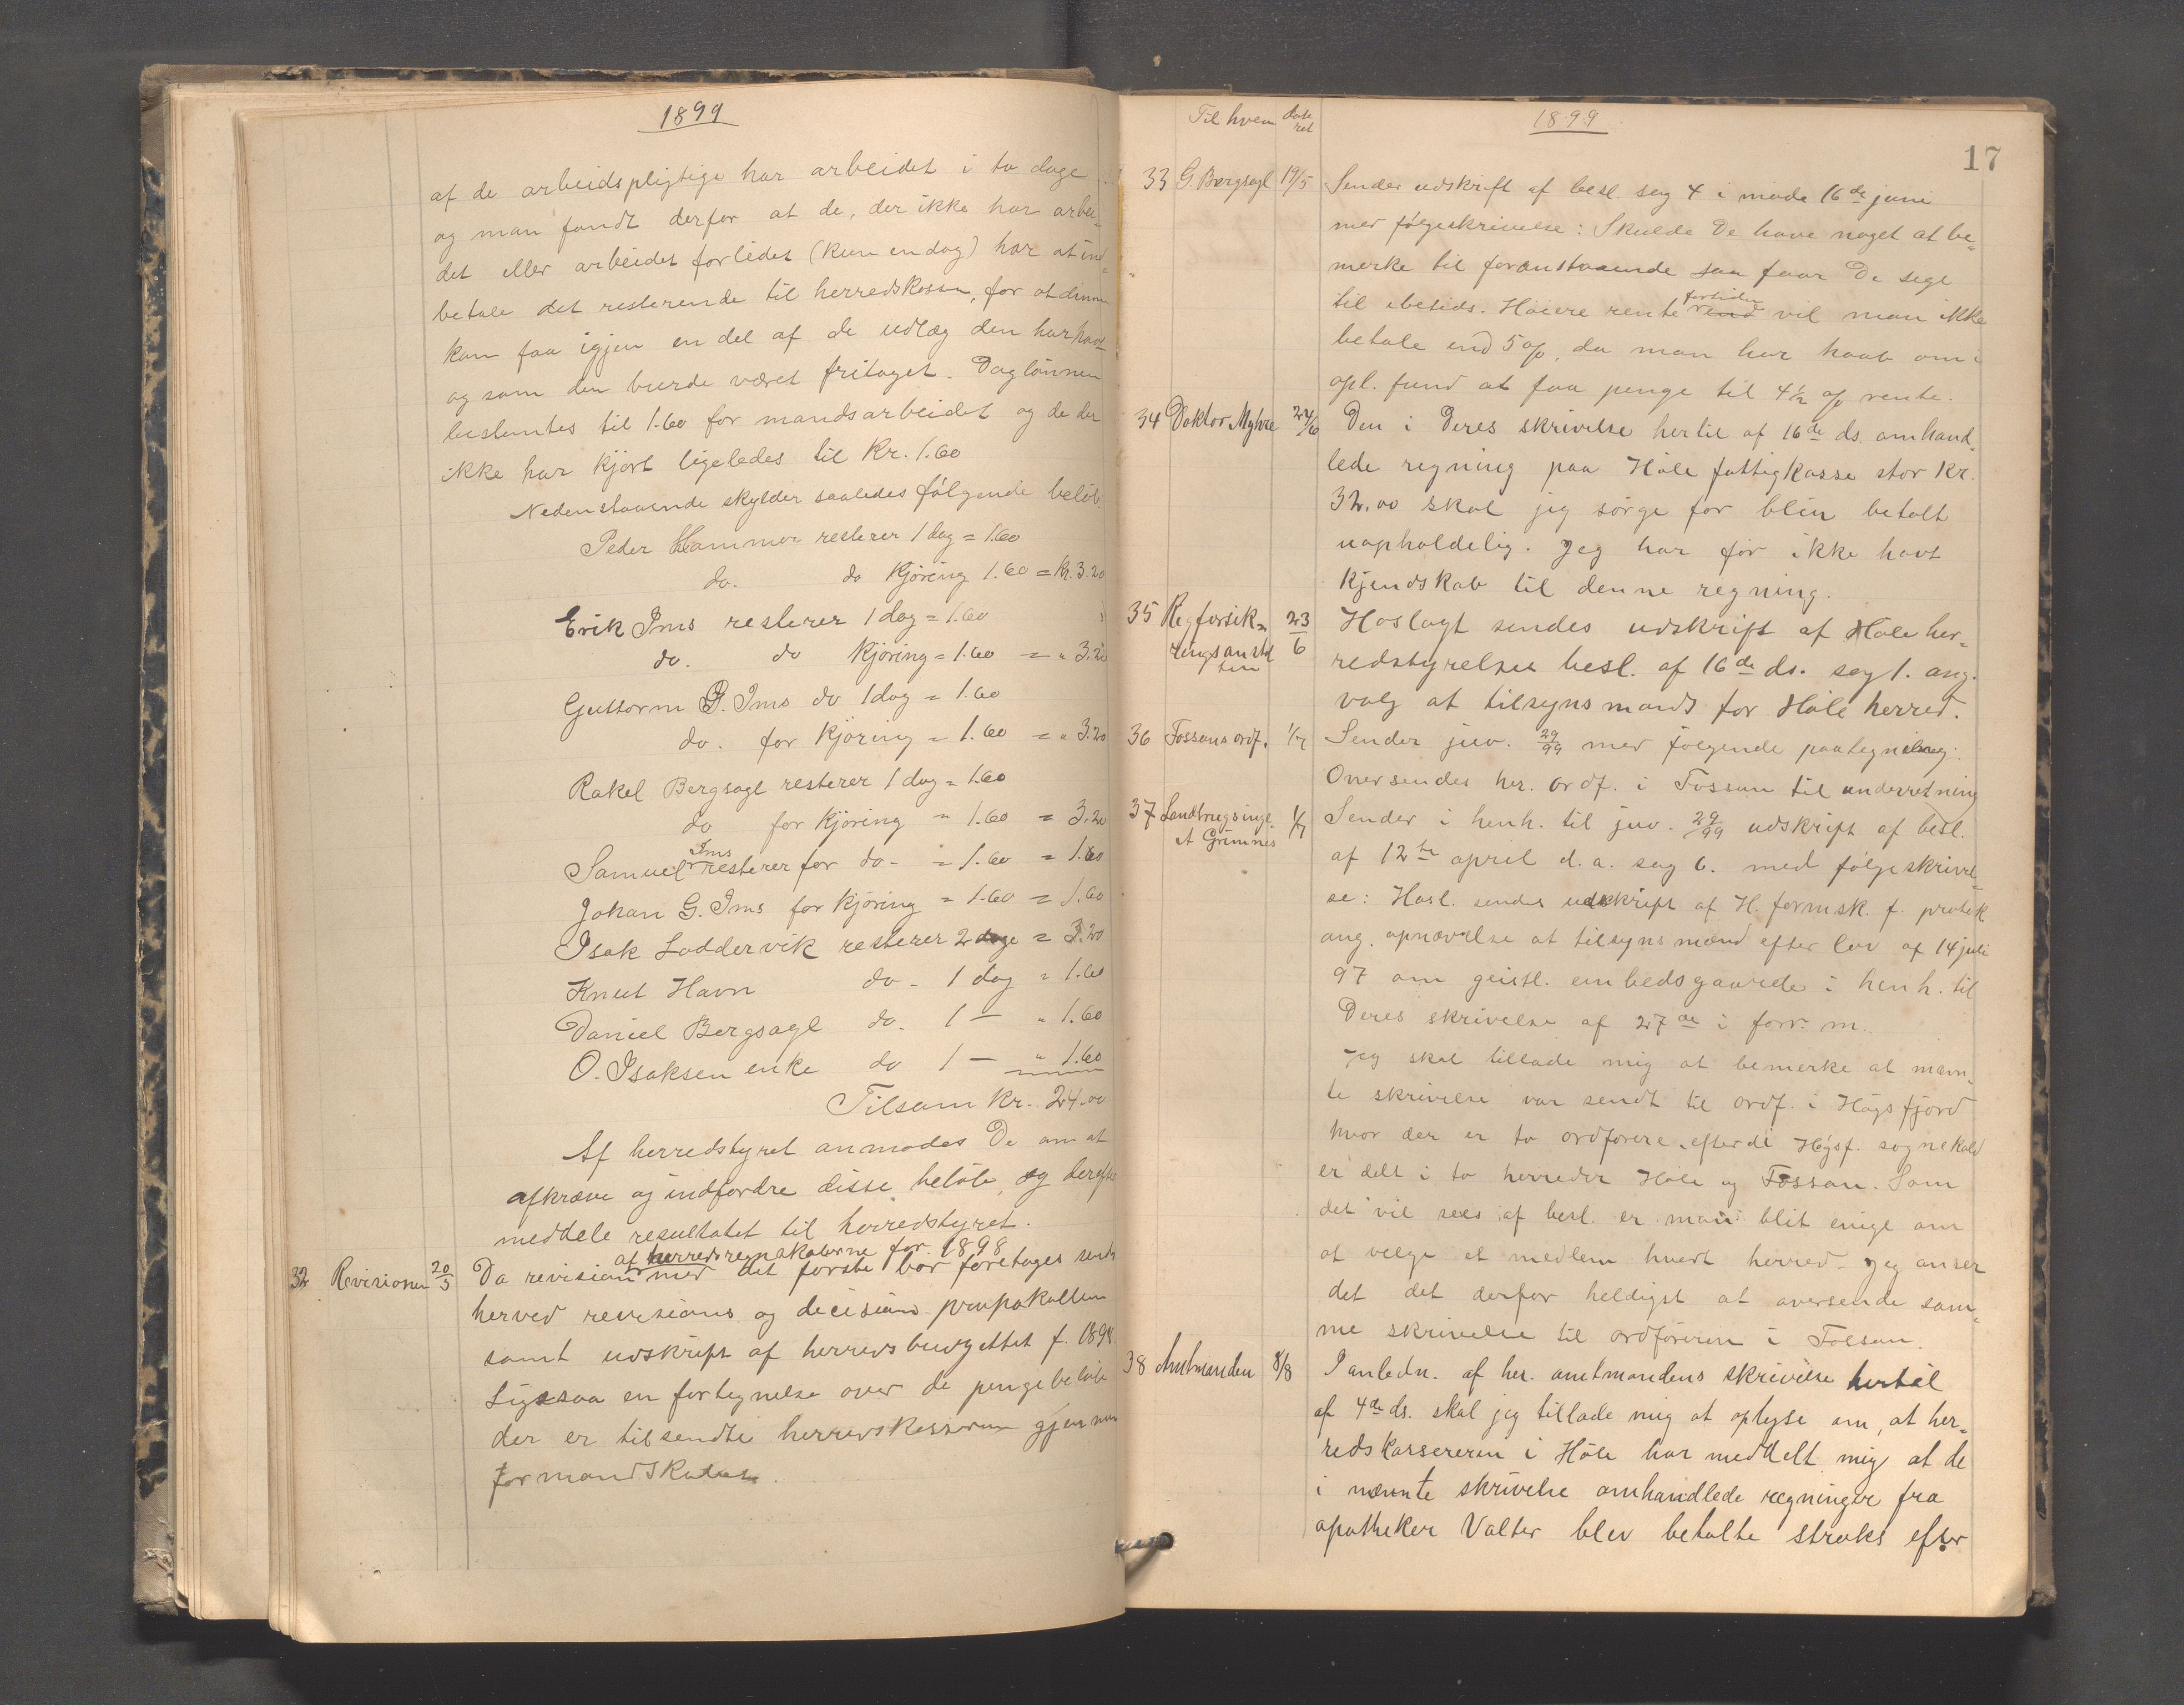 1899
af de arbeidspligtige har arbeidet i to dage
og man fandt derfor at de, der ikke har arbei-
det eller arbeidet forlidet (kun en dag) har at ind-
betale det resterende til herredskassen, for at denne
kan faa igjen en del af de udlæg den har havt
og som den burde været fritaget. Daglønnen
bestemtes til 1.60 for mandsarbeidet og de der
ikke har kjørt ligeledes til Kr. 1.60
Nedenstaaende skylder saaledes følgende beløb
Peder Hammer resterer 1 dag = 1.60
do. do kjøring 1.60 = kr. 3.20
Erik Ims resterer 1 dag = 1.60
do. do kjøring = 1.60 = " 3.20
Guttorm G. Ims do 1 dag = 1.60
do. for kjøring = 1.60 = " 3.20
Rakel Bergsagl resterer 1 dag = 1.60
do for kjøring = 1.60 = 3.20
Samuel Ims resterer for do - = 1.60 = 1.60
Johan G. Ims for kjøring = 1.60 = 1.60
Isak Loddervik resterer 2 dage = 3.20
Knut Havn do - 1 dag = 1.60
Daniel Bergsagl do. 1 — " 1.60
O. Isaksen enke do 1 — " 1.60
Tilsam kr. 24.00
Af herredstyret anmodes De om at
afkræve og indfordre disse beløb, og derefter
meddele resultatet til herredstyret.
af herredsregnskaberne for 1898
32 Revisionen 20/5 Da revision med det første bør foretages sendes
herved revisions og decisions
samt udskrift af herredsbudgettet f. 1898
Ligesaa en fortegnelse over de pengebeløb
der er tilsendte herredskassereren gjennem
formandskabet.
Til hvem date ret 1899
17
33 G. Bergsagl 19/5 Sender udskrift af besl. sag 4 i møde 16de juni
med følgeskrivelse: Skulde De have noget at be-
merke til foranstaaende saa faar De sige
til itteds. Høiere rente fortiden vil man ikke
betale end 5 %, da man har haab om i
opl. fund at faa penge til 4½ % rente.
34 Doktor Myhre 24/6 Den i Deres skrivelse hertil af 16de ds. omhand-
lede regning paa Høle fattigkasse stor kr.
32.00 skal jeg sørge for bliv betalt
uopholdelig. Jeg har før ikke havt
kjendskab til denne regning.
35 Rigforsik- 23/6 Hoslagt sendes udskrift af Høle her-
ringsanstal ten redstyrelses besl. af 16de ds. sag 1. ang.
valg at tilsynsmand for Høle herred.
36 Fossans ordf. 1/7 Sender juv. 29/99 med følgende paategning:
Oversendes hr. ordf. i Fossan til underretning
37 Landbrugsinge. 1/7 Sender i henh. til juv. 29/99 udskrift af besl.
A Grimnes af 12te april d. a. sag 6. med følgeskrivel-
se: Hosl. sendes udskrift af H. formsk. f. protok
ang. opnævelse at tilsynsmænd efter lov af 14 juli
97 om geistl. embedsgaarde i henh. til
Deres skrivelse af 27de i forr. m.
Jeg skal tillade mig at bemerke at nævn-
te skrivelse var sendt til ordf. i Høgsfjord
hvor der er to ordførere, efterdi Høgsf. sognekald
er delt i to herreder Høle og Fossan. Som
det vil sees af besl. er man blit enige om
at velge et medlem hvert herred. Jeg anser
det det derfor heldigst at oversende sam-
me skrivelse til ordføreren i Fossan.
38 Amtmanden 8/8 I anledn. af hr. amtmandens skrivelse hertil
af 4de ds. skal jeg tillade mig at oplyse om, at her-
redskassereren i Høle har meddelt mig at de
i nævnte skrivelse omhandlede regninger fra
apotheker Valter blev betalte straks efter